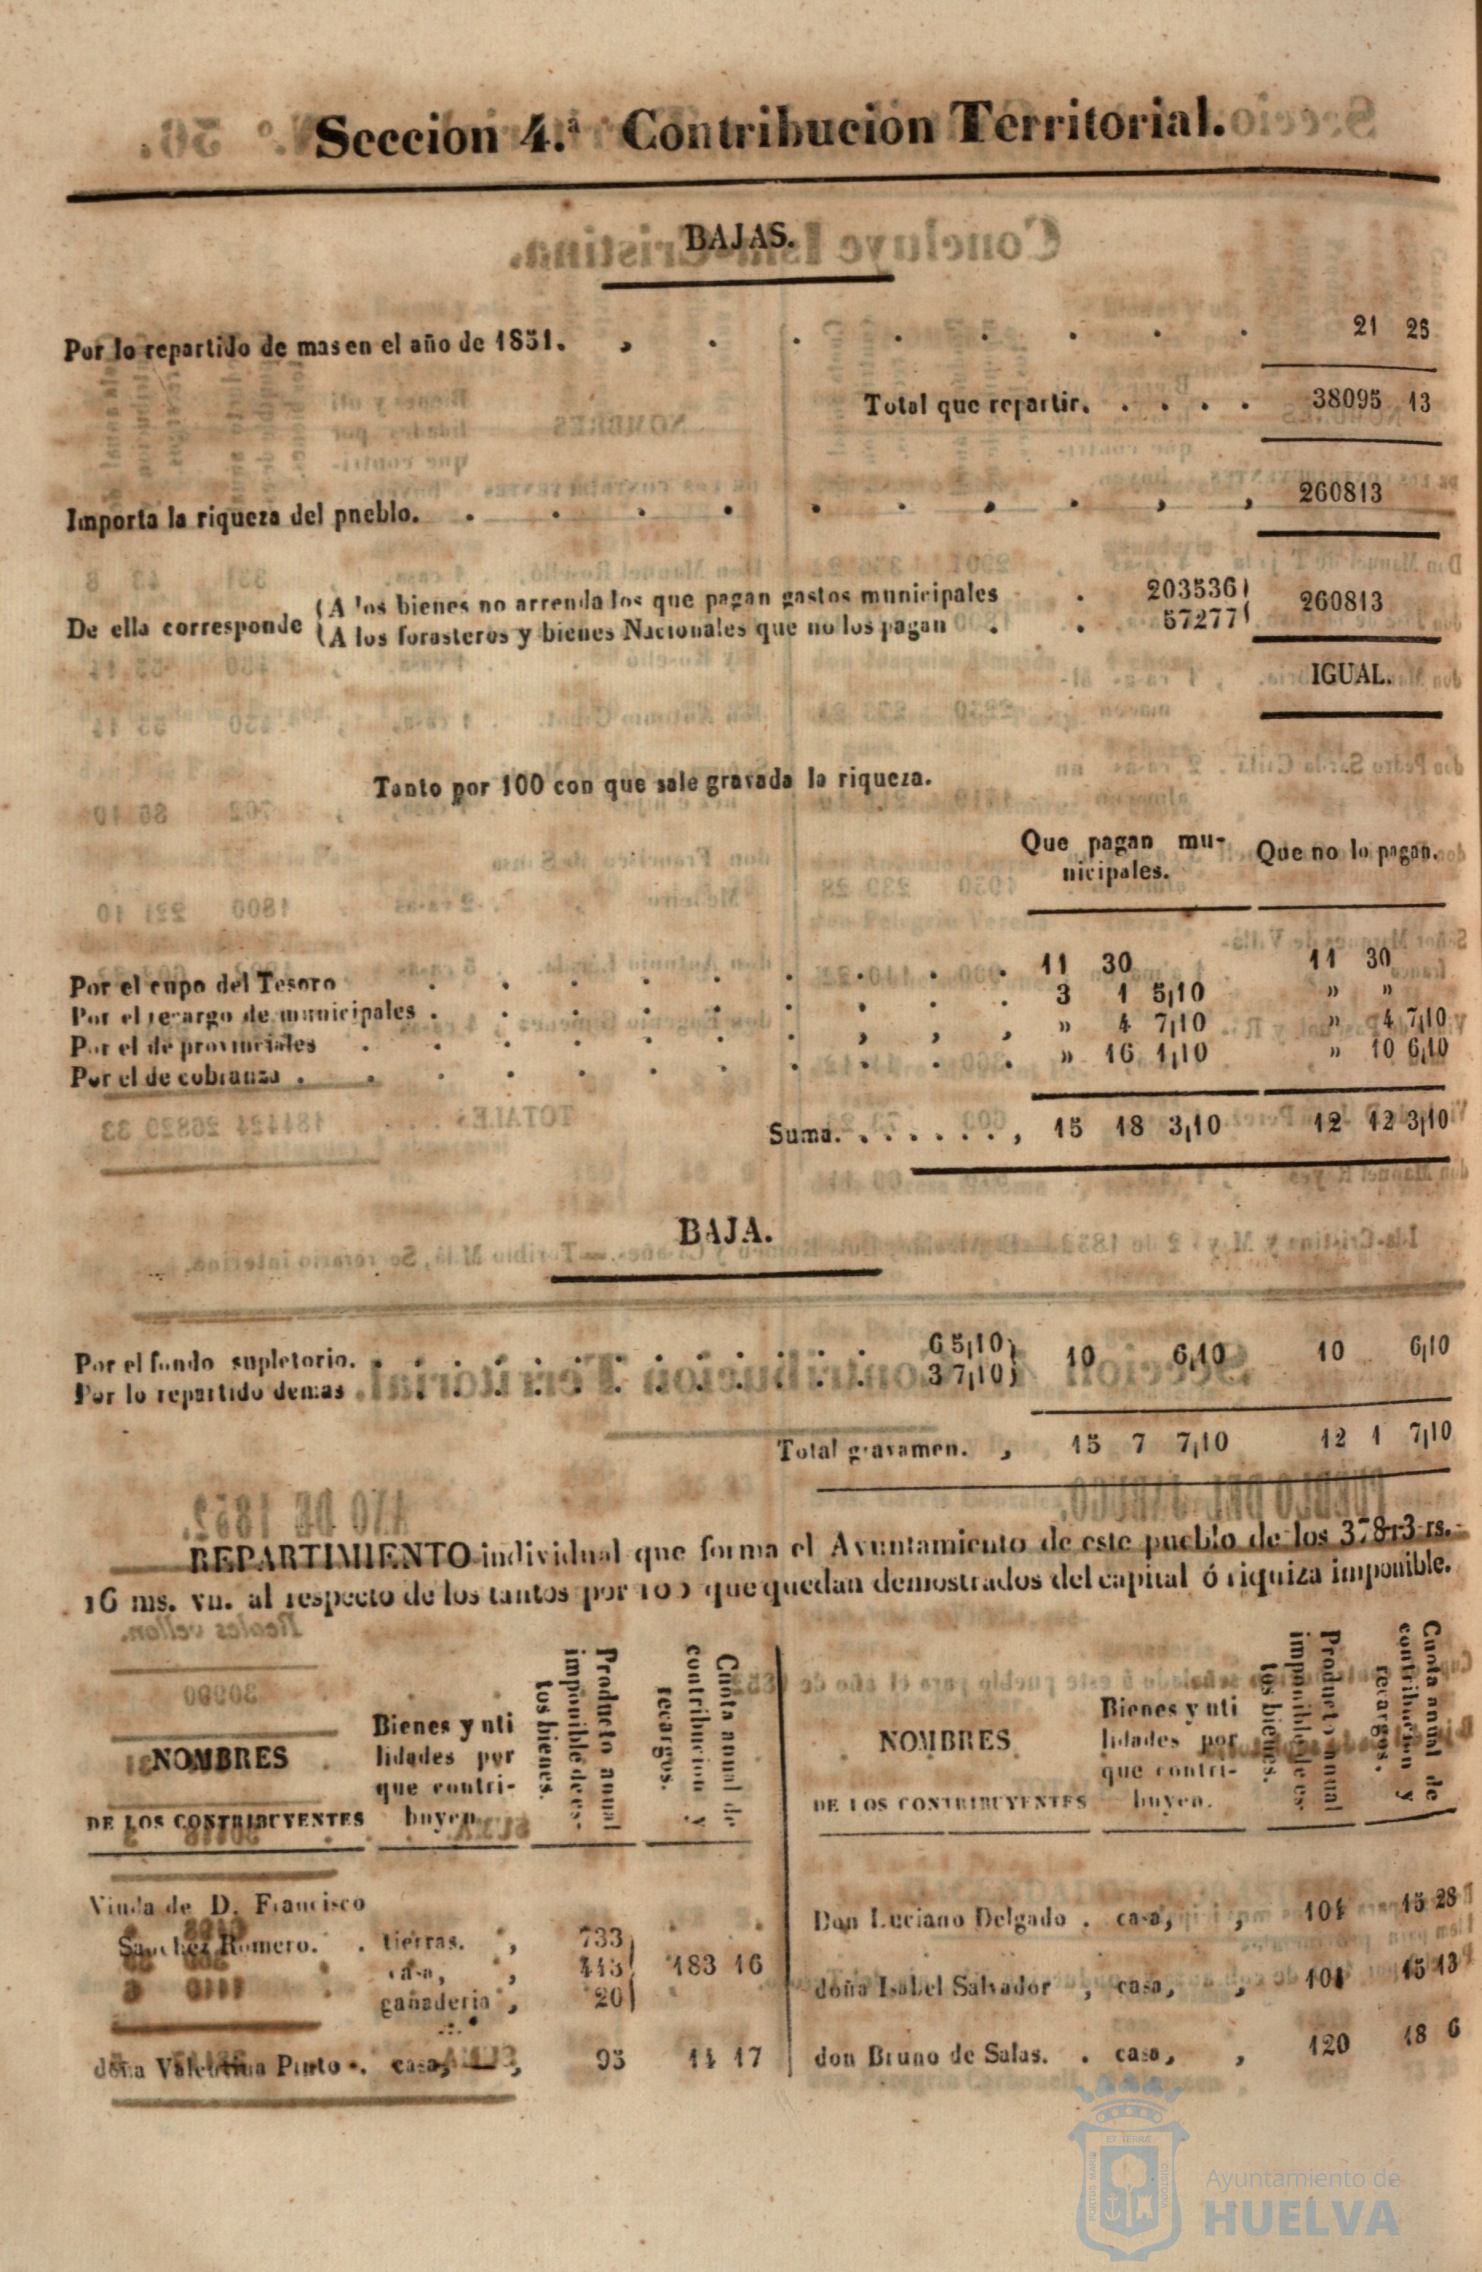 Seccion 4.ª Contribucion Territorial.
BAJAS.
Por lo repartido de mas en el año de 1851. 21 25
Total que repartir. 38095 13
Importa la riqueza del pneblo. 260813
De ella corresponde
(A los bienes no arrendalos que pagan gastos municipales 203536)
(A los forasteros y bienes Nacionales que no los pagan 57277)
260813
IGUAL.
Tanto por 100 con que sale gravada la riqueza.
Que pagan mu-
nicipales.
Que no lo pagan.
Por el cupo del Tesoro 11 30 11 30
Por el recargo de municipales 3 1 5,10 » »
Por el de provinciales » 4 7,10 » 4 7,10
Por el de cobranza » 16 1,10 » 10 6,10
Suma. 15 18 3,10 12 12 3,10
BAJA.
Por el fondo supletorio. 6 5,10)
Por lo repartido demas 3 7,10)
10 6,10 10 6,10
Total gravamen. 15 7 7,10 12 1 7,10
REPARTIMIENTO individual que forma el Ayuntamiento de este pueblo de los rs.
16 ms. vn. al respecto de los tantos por 100 que quedan demostrados del capital ó riquiza imponible.
NOMBRES
DE LOS CONTRIBUYENTES
Bienes y uti
lidades por
que contri-
buyen.
Producto anual
imponible de es-
tos bienes.
Cuota anual de
contribucion y
recargos.
Viuda de D. Francisco
Sanchez Romero. tierras. 733)
casa, 445) 183 16
ganaderia, 20)
doña Valentina Pinto casa, 95 14 17
NOMBRES
DE LOS CONTRIBUYENTES
Bienes y uti
lidades por
que contri-
buyen.
Producto anual
imponible de es-
tos bienes.
Cuota anual de
contribucion y
recargos.
Don Luciano Delgado casa, 104 15 28
doña Isabel Salvador casa, 101 15 13
don Bruno de Salas. casa, 120 18 6
ET TERRÆ
PORTUS MARIS
CUSTODIA
Ayuntamiento de
HUELVA